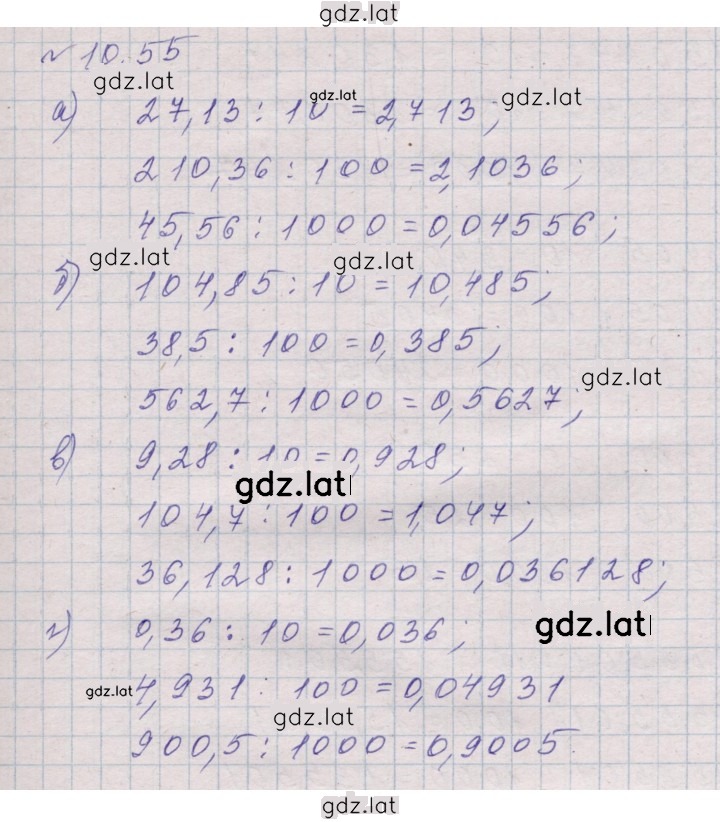 gdz.lat
№ 10.55
gdz.lat
а) 27,13 : 10 = 2,713; gdz.lat
gdz.lat
210,36 : 100 = 2,1036;
45,56 : 1000 = 0,04556;
gdz.lat gdz.lat
б) 104,85 : 10 = 10,485;
38,5 : 100 = 0,385;
gdz.lat
562,7 : 1000 = 0,5627;
в) 9,28 : 10 = 0,928;
gdz.lat
104,7 : 100 = 1,047;
36,128 : 1000 = 0,036128;
г) 0,36 : 10 = 0,036; gdz.lat
gdz.lat 4,931 : 100 = 0,04931
gdz.lat
900,5 : 1000 = 0,9005
gdz.lat